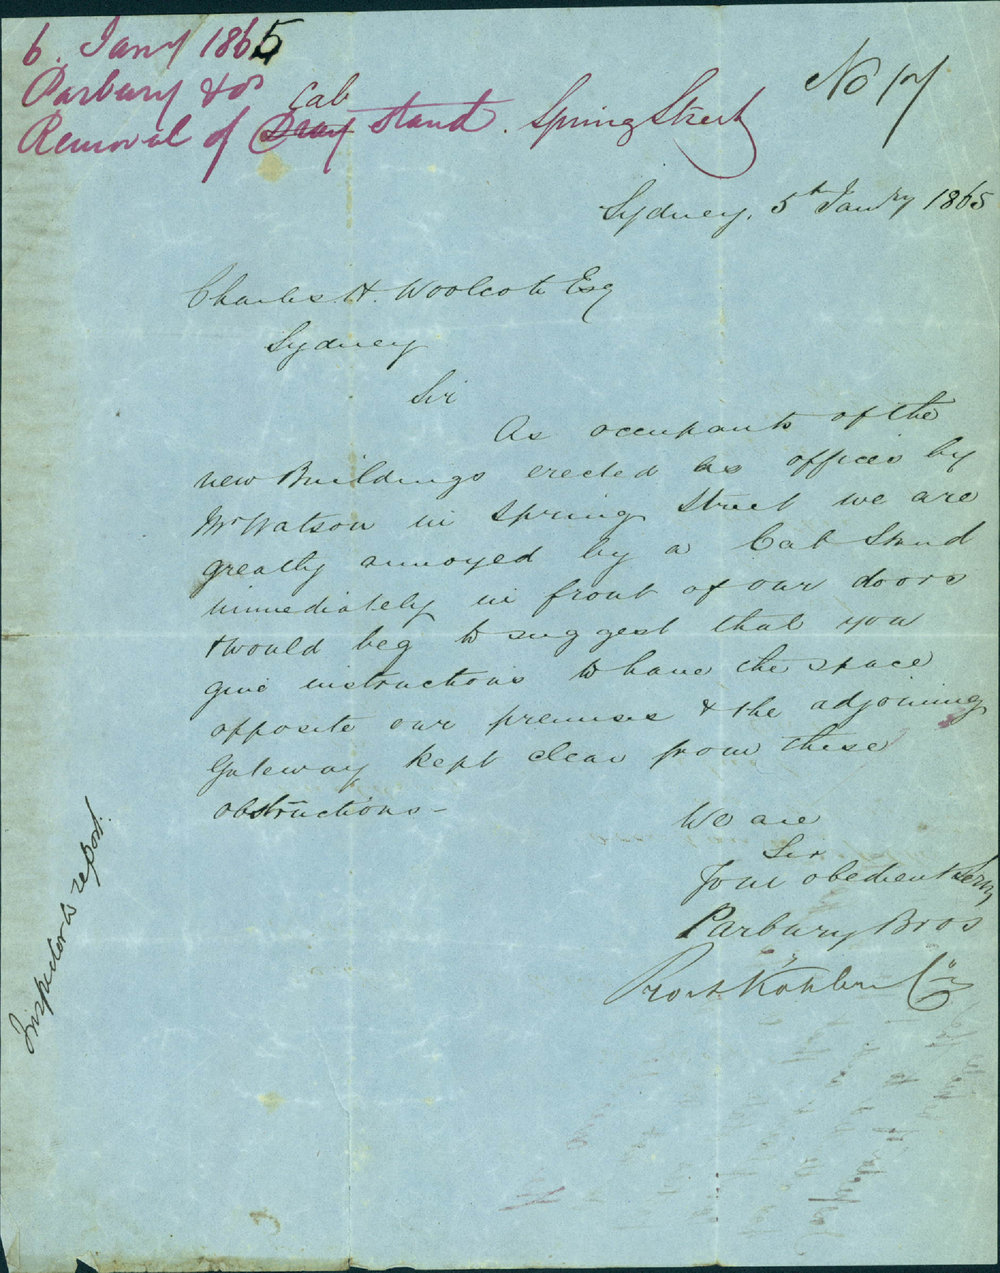 6. Jany 1865
Parbury & ors
Removal of Dray Cab stand. Spring Street
No 17
Sydney, 5th Janry 1865
Charles H. Woolcott Esq
Sydney
Sir
As occupants of the
new Buildings erected as offices by
Mr Watson in Spring Street we are
greatly annoyed by a Cab Stand
immediately in front of our doors
& would beg to suggest that you
give instructions to have the space
opposite our premises & the adjoining
Gateway kept clear from these
obstructions—
We are
Sir
Your obedient Servts
Parbury Bros
Prost Kohler & Co
Inspector to report.